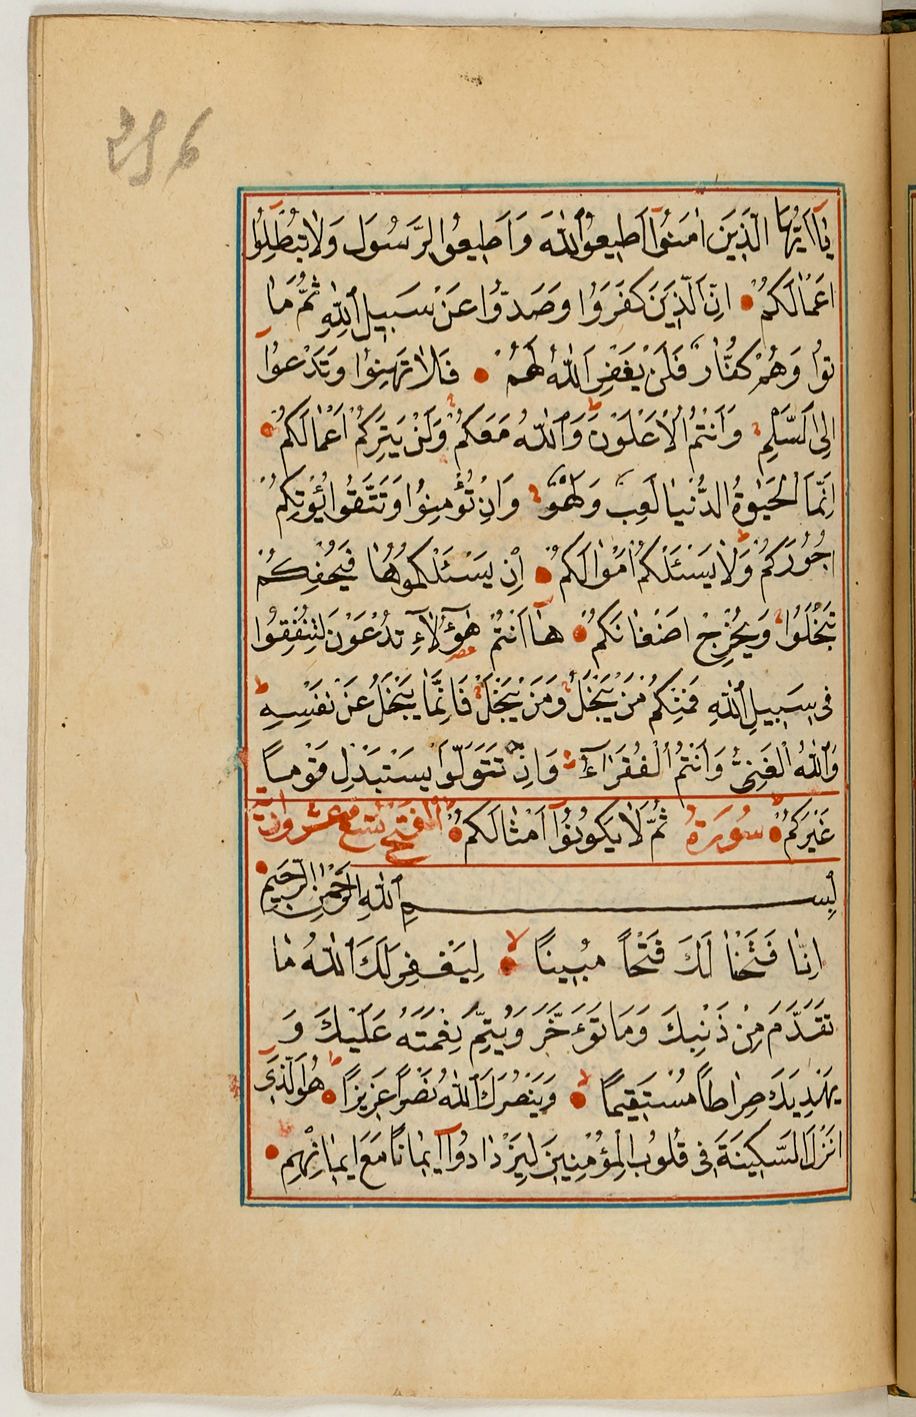 296
يَا اَيُّهَا الَّذِينَ اٰمَنُوٓا اَطِيعُوا اللّٰهَ وَاَطِيعُوا الرَّسُولَ وَلَا تُبْطِلُٓوا
اَعْمَالَكُمْ اِنَّ الَّذِينَ كَفَرُوا وَصَدُّوا عَنْ سَبِيلِ اللّٰهِ ثُمَّ مَا
تُوا وَهُمْ كُفَّارٌ فَلَنْ يَغْفِرَ اللّٰهُ لَهُمْ فَلَا تَهِنُوا وَتَدْعُٓوا
اِلَى السَّلْمِ وَاَنْتُمُ الْاَعْلَوْنَ وَاللّٰهُ مَعَكُمْ وَلَنْ يَتِرَكُمْ اَعْمَالَكُمْ
اِنَّمَا الْحَيٰوةُ الدُّنْيَا لَعِبٌ وَلَهْوٌ وَاِنْ تُؤْمِنُوا وَتَتَّقُوا يُؤْتِكُمْ
اُجُورَكُمْ وَلَا يَسْئَلْكُمْ اَمْوَالَكُمْ اِنْ يَسْئَلْكُمُوهَا فَيُحْفِكُمْ
تَبْخَلُوا وَيُخْرِجْ اَضْغَانَكُمْ هَٓا اَنْتُمْ هٰٓؤُلَٓاءِ تُدْعَوْنَ لِتُنْفِقُوا
فِى سَبِيلِ اللّٰهِ فَمِنْكُمْ مَنْ يَبْخَلُ وَمَنْ يَبْخَلْ فَاِنَّمَا يَبْخَلُ عَنْ نَفْسِهِ
وَاللّٰهُ الْغَنِىُّ وَاَنْتُمُ الْفُقَرَٓاءُ وَاِنْ تَتَوَلَّوْا يَسْتَبْدِلْ قَوْمًا
غَيْرَكُمْ ثُمَّ لَا يَكُونُٓوا اَمْثَالَكُمْ سُورَةُ الْفَتْحِ تسع وعشرون آية
بِسْمِ اللّٰهِ الرَّحْمٰنِ الرَّحِيمِ
اِنَّا فَتَحْنَا لَكَ فَتْحًا مُبِينًا لِيَغْفِرَ لَكَ اللّٰهُ مَا
تَقَدَّمَ مِنْ ذَنْبِكَ وَمَا تَوَءَخَّرَ وَيُتِمَّ نِعْمَتَهُ عَلَيْكَ وَ
يَهْدِيَكَ صِرَاطًا مُسْتَقِيمًا وَيَنْصُرَكَ اللّٰهُ نَصْرًا عَزِيزًا هُوَ الَّذِٓى
اَنْزَلَ السَّكِينَةَ فِى قُلُوبِ الْمُؤْمِنِينَ لِيَزْدَادُٓوا اِيمَانًا مَعَ اِيمَانِهِمْ